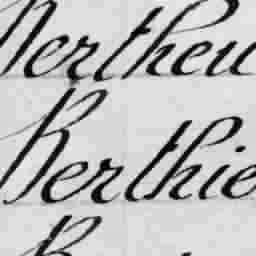 Bertheu
Berthie